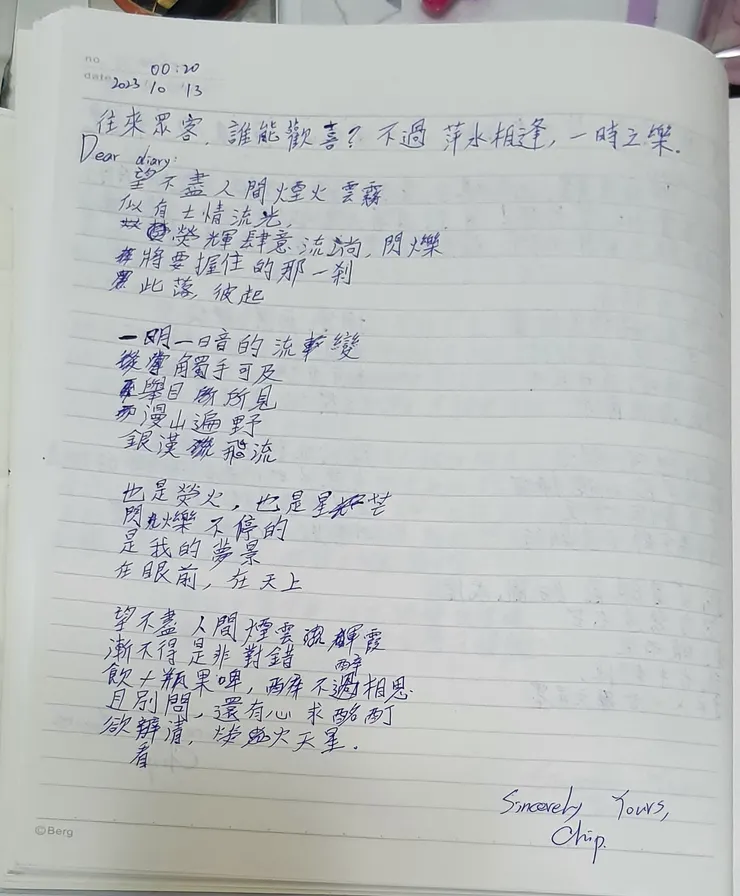 no
00:20
date 2023 10 13
往來眾客，誰能歡喜？不過 萍水相逢，一時之樂．
Dear diary:
望不盡人間煙火 雲霧
似有士情流光，
熒輝肆意流淌，閃爍
將要握住的那一剎
此落，彼起
一明一暗的流轉變
觸手可及
舉目所見
漫山遍野
銀漢飛流
也是熒火，也是星芒
閃爍不停的
是我的夢景
在眼前，在天上
望不盡人間煙雲輝霞
漸不得是非對錯
飲十瓶果啤，醉不過相思
醉
且別問，還有心求酩酊
欲辦清，火天星．
看
Sincerely Yours,
Chip.
©Berg